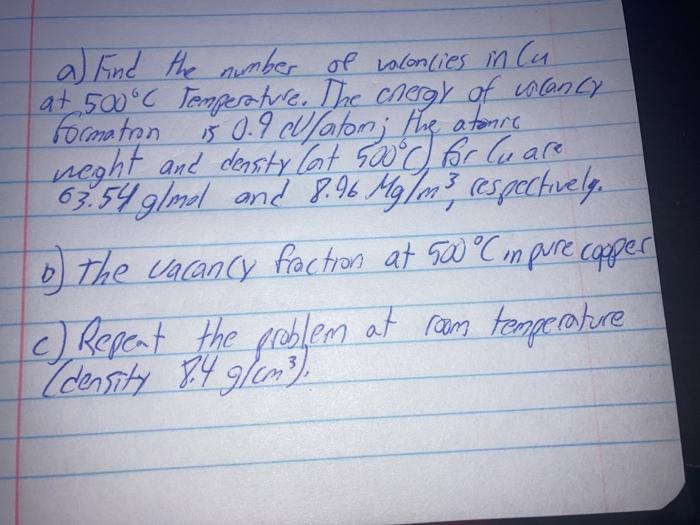 a) Find the number of vacancies in Cu
at 500°C Temperature. The energy of vacancy
formation is 0.9 eV/atom; the atomic
weight and density (at 500°C) for Cu are
63.54 g/mol and 8.96 Mg/m³, respectively.
b) The vacancy fraction at 500°C in pure copper
c) Repeat the problem at room temperature
(density 8.4 g/cm³).